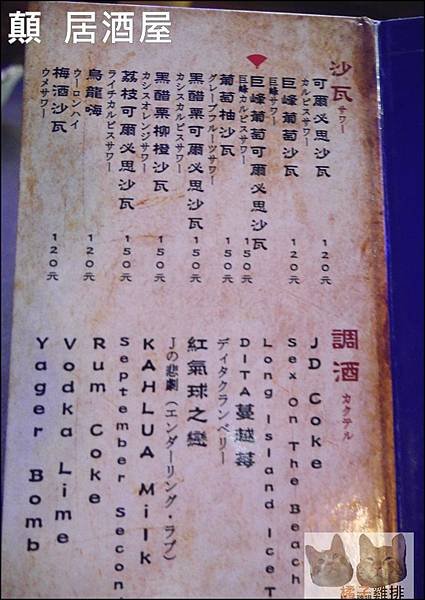 顛 居酒屋
沙瓦 サワー
可爾必思沙瓦 120元
カルピスサワー
巨峰葡萄沙瓦 120元
巨峰サワー
巨峰葡萄可爾必思沙瓦 150元
巨峰カルピスサワー
葡萄柚沙瓦 150元
グレープフルーツサワー
黑醋栗可爾必思沙瓦 150元
カシスカルピスサワー
黑醋栗柳橙沙瓦 150元
カシスオレンジサワー
荔枝可爾必思沙瓦 150元
ライチカルピスサワー
烏龍嗨 120元
ウーロンハイ
梅酒沙瓦 120元
ウメサワー
調酒 カクテル
JD Coke
Sex On The Beach
Long Island Ice T
DITA蔓越莓
ディタクランベリー
紅氣球之戀
Jの悲劇（エンダーリング・ラブ）
KAHLUA Milk
September Secon
Rum Coke
Vodka Lime
Yager Bomb
橘子雞排